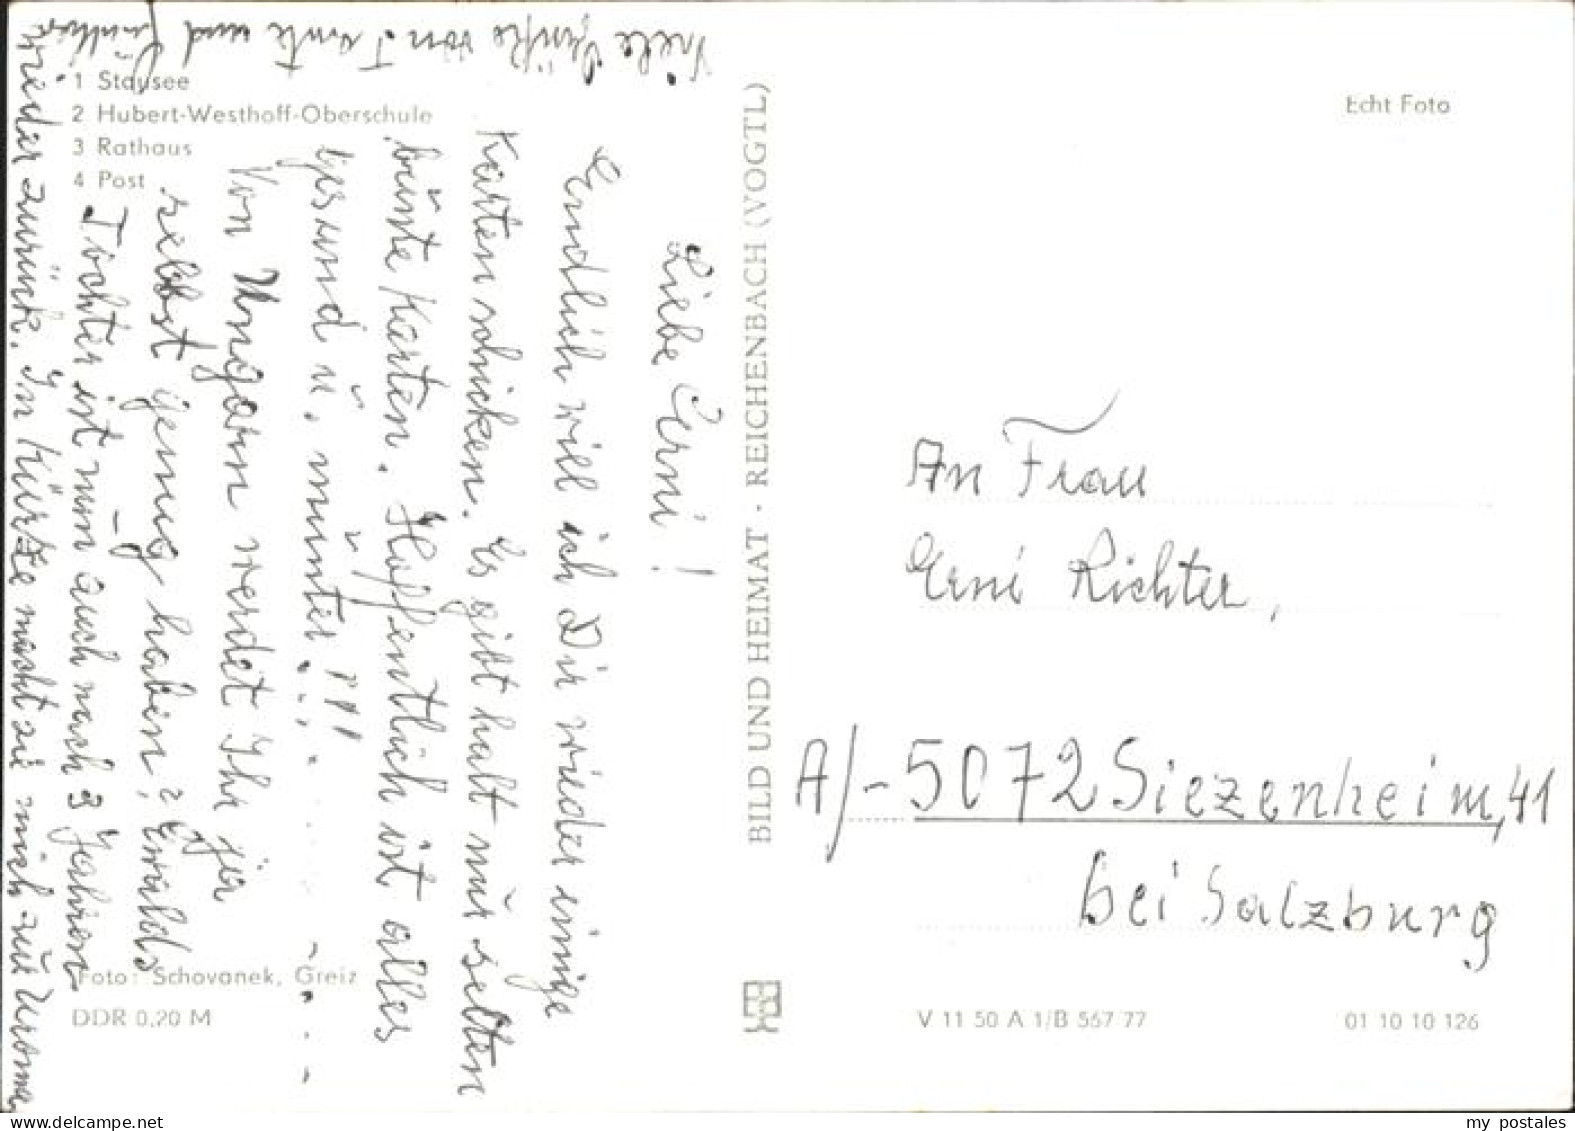 1 Stausee
2 Hubert-Westhoff-Oberschule
3 Rathaus
4 Post
Liebe Erni!
Endlich will ich Dir wieder einige
Karten schicken. Es gibt halt nur selten
bunte Karten. Hoffentlich ist alles
gesund u. munter!!!
Von Ungarn werdet Ihr ja
selbst genug haben, ? Ewalds
Tochter ist nun auch nach 3 Jahren
wieder zurück. In Kürze macht sie mich zur Uroma.
Viele Grüße von Tante und Günther
Foto: Schovanek, Greiz
DDR 0,20 M
BILD UND HEIMAT · REICHENBACH (VOGTL)
Echt Foto
An Frau
Erni Richter,
A/-5072 Siezenheim, 41
bei Salzburg
V 11 50 A 1/B 567 77
01 10 10 126
delcampe.net
my_postales